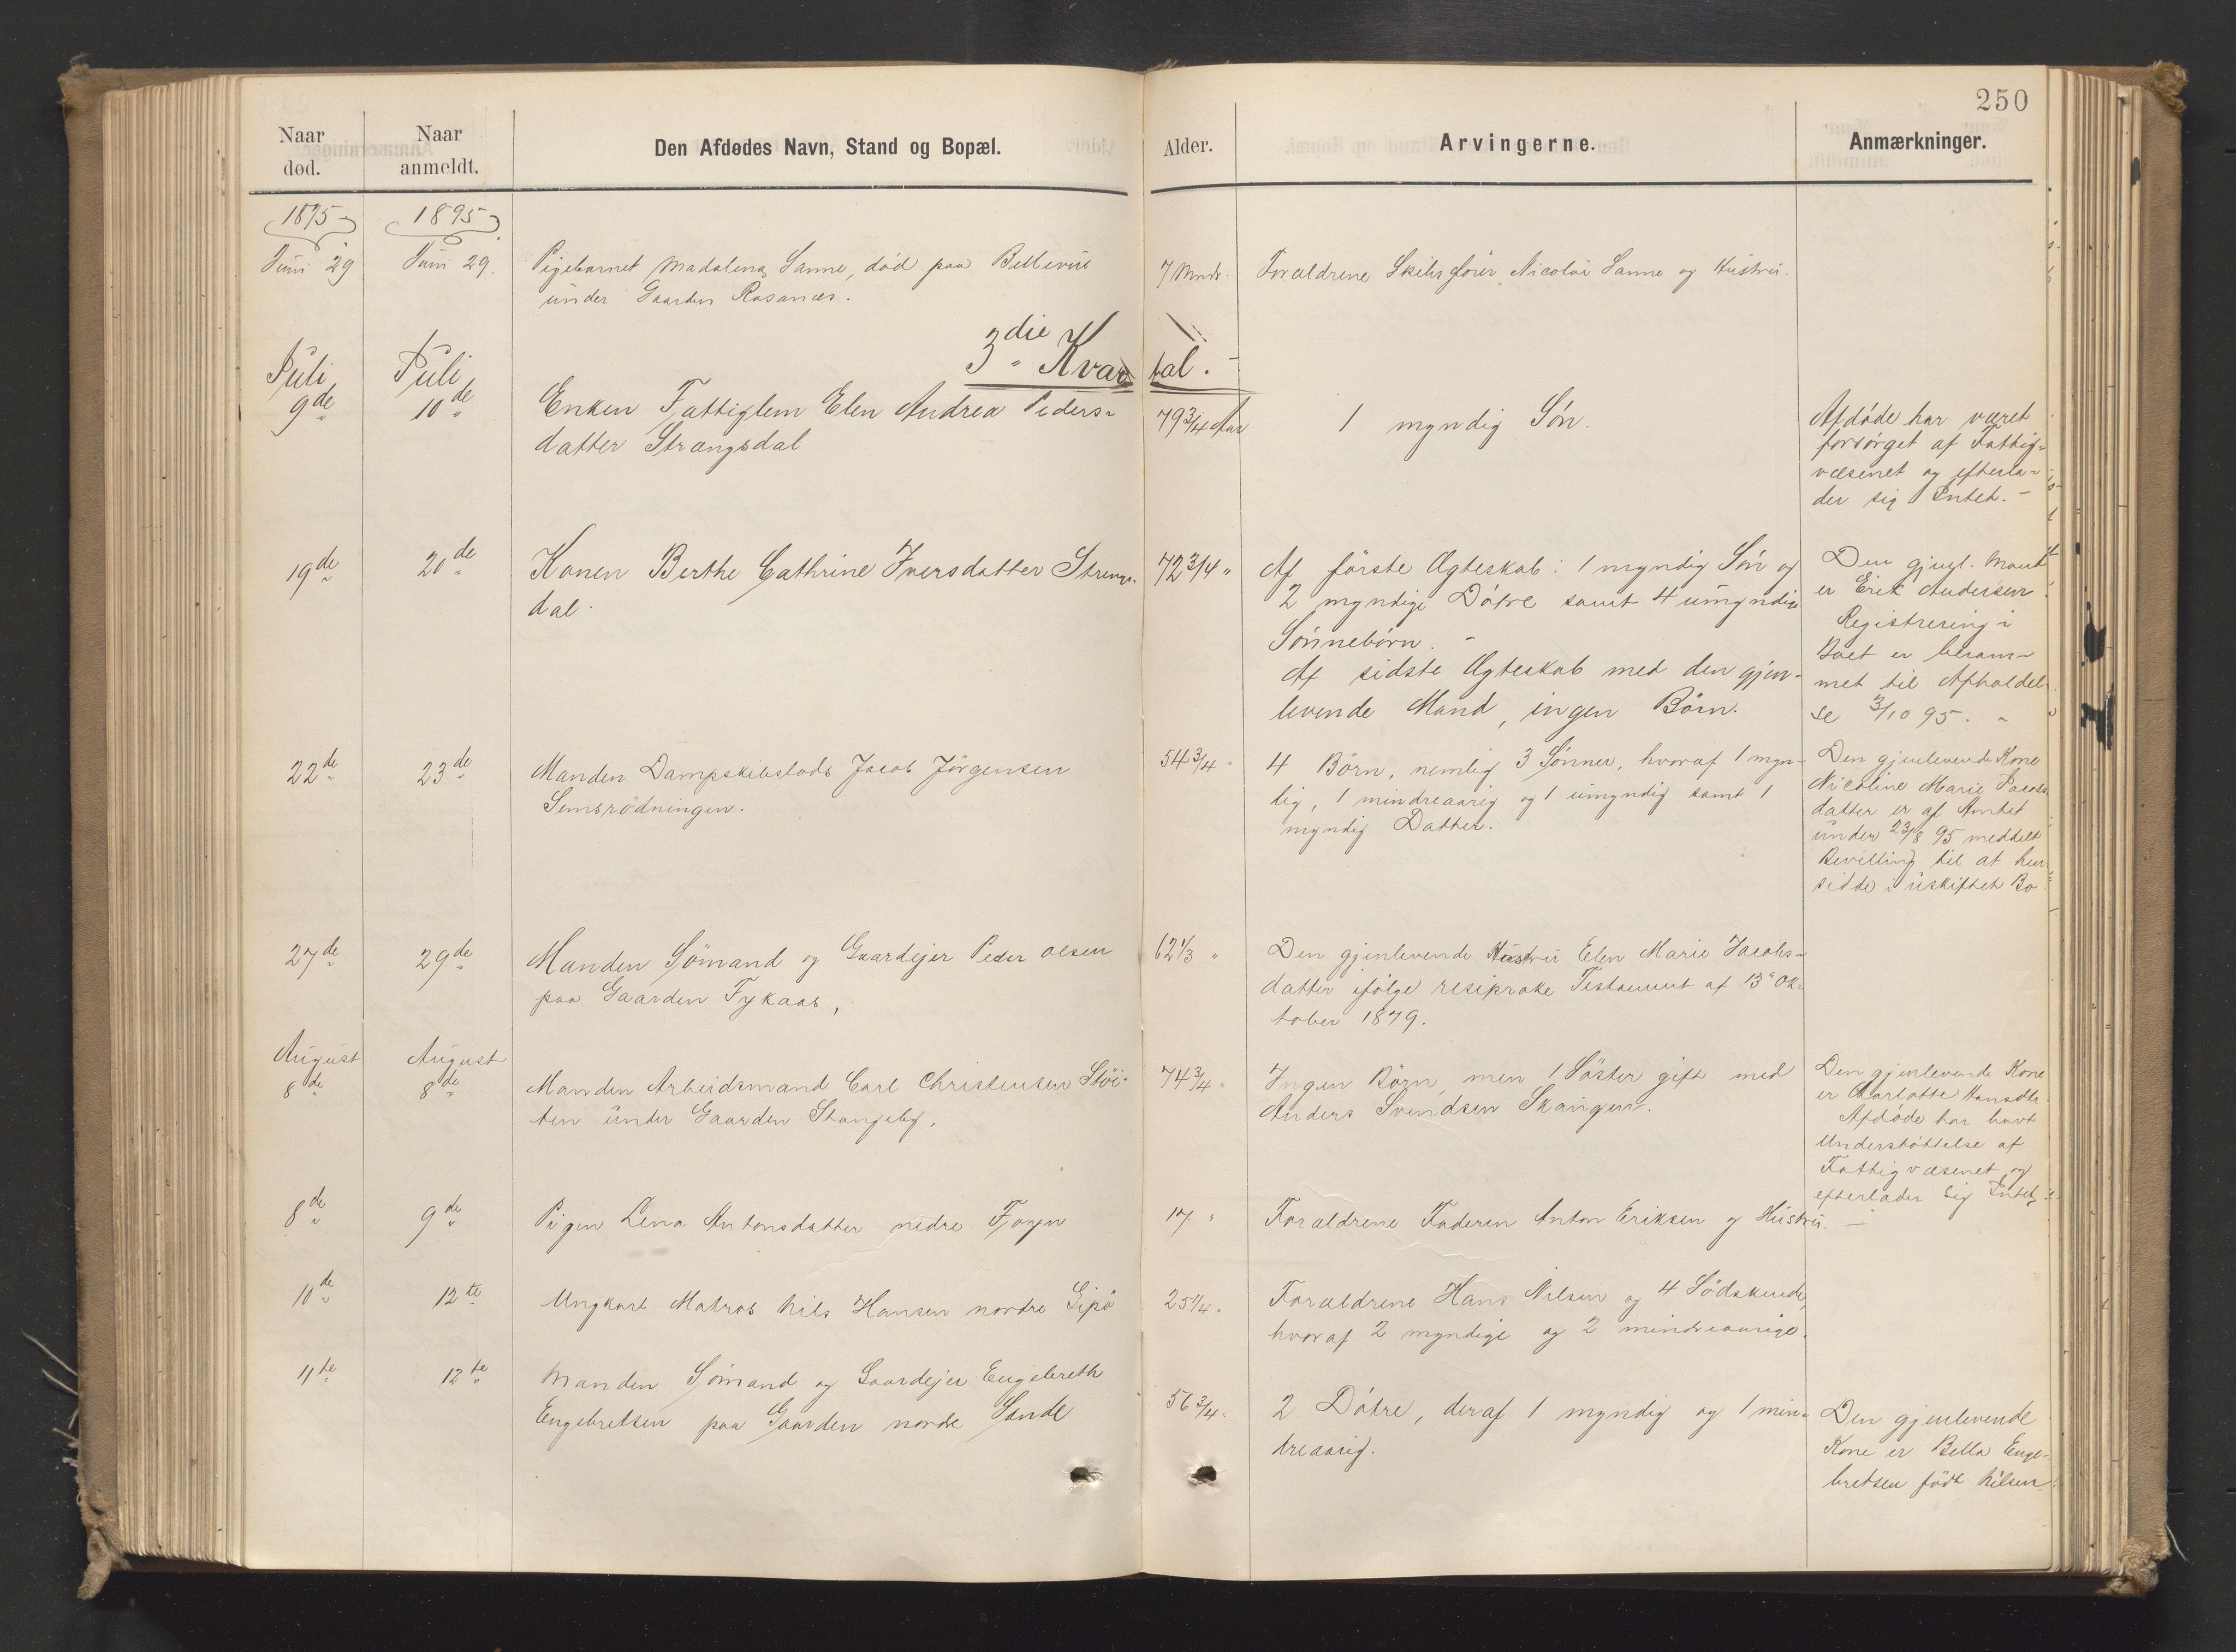 250
Naar død.
Naar anmeldt.
Den Afdødes Navn, Stand og Bopæl.
Alder.
Arvingerne.
Anmærkninger.
1895
1895
Juni 29
Juni 29.
Pigebarnet Madalena Sanne, død paa Bellevüe
under Gaarden Rosanes.
7 Mndr.
Forældrene Skibsfører Nicolai Sanne og Hustru.
3die Kvartal.
Juli
9de
Juli
10de
Enken Fattiglem Elen Andrea Peders-
datter Strængsdal
79 3/4 Aar
1 myndig Søn.
Afdøde har været
forsørget af Fattig-
væsenet og efterla-
der sig Intet. -
19de
20de
Konen Berthe Cathrine Iversdatter Strengs-
dal.
72 3/4 "
Af første Ægteskab: 1 myndig Søn og
2 myndige Døtre samt 4 umyndige
Sønnebørn. -
Af sidste Ægteskab med den gjen-
levende Mand, ingen Børn.
Den gjenl. Mand
er Erik Andersen.
Registrering i
Boet er beram-
met til Afholdel-
se 3/10 95. "
22de
23de
Manden Dampskibslods Jacob Jørgensen
Semsrødningen.
54 3/4 "
4 Børn, nemlig 3 Sønner, hvoraf 1 myn-
dig, 1 mindreaarig og 1 umyndig samt 1
myndig Datter.
Den gjenlevende Kone
Nicoline Marie Jacobs
datter er af Amtet
under 23/8 95 meddelt
Bevilling til at hen-
sidde i uskiftet Bo
27de
29de
Manden Sømand og Gaardejer Peder Olsen
paa Gaarden Fykaas,
62 1/3 "
Den gjenlevende Hustru Elen Marie Jacobs-
datter ifølge resiproke Testament af 13" Ok-
tober 1879.
August
8de
August
8de
Manden Arbeidsmand Carl Christensen Støi-
ten under Gaarden Stangeby.
74 3/4 "
Ingen Børn, men 1 Søster gift med
Anders Svendsen Skaugen.
Den gjenlevende Kone
er Charlotte Hansdtr.
Afdøde har havt
Understøttelse af
Fattigvæsenet og
efterlader sig Intet
8de
9de
Pigen Lena Antonsdatter nedre Foyn
17 "
Forældrene Faderen Anton Eriksen og Hustru. -
10de
12te
Ungkarl Matros Nils Hansen nordre Gipø
25 1/4 "
Forældrene Hans Nilsen og 4 Sødskende,
hvoraf 2 myndige og 2 mindreaarige.
11te
12te
Manden Sømand og Gaardejer Engebreth
Engebretsen paa Gaarden nordre Sande
56 3/4 "
2 Døtre, deraf 1 myndig og 1 min-
dreaarig.
Den gjenlevende
Kone er Bella Enge-
bretsen født Nilsen